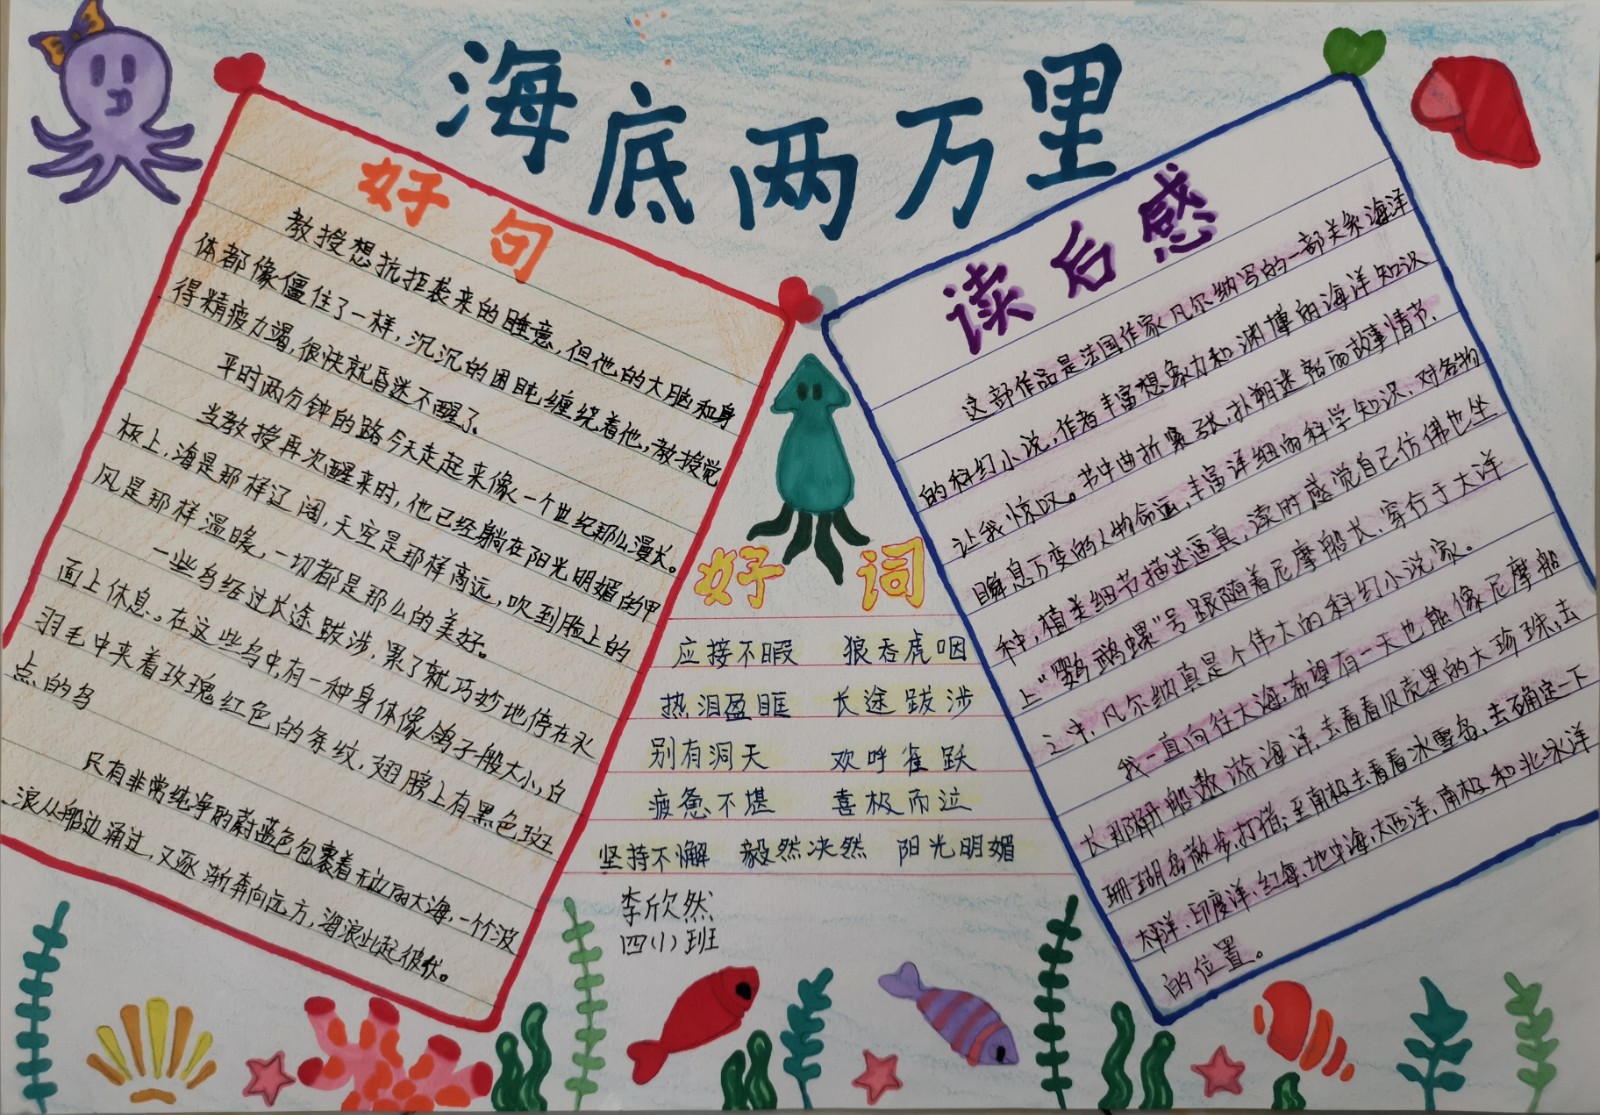 海底两万里
好句
教授想抗拒袭来的睡意,但他的大脑和身
体都像僵住了一样,沉沉的困盹缠绕着他,教授觉
得精疲力竭,很快就昏迷不醒了。
平时两分钟的路今天走起来像一个世纪那么漫长。
当教授再次醒来时,他已经躺在阳光明媚的甲
板上,海是那样辽阔,天空是那样高远,吹到脸上的
风是那样温暖,一切都是那么的美好。
一些鸟经过长途跋涉,累了就巧妙地停在水
面上休息。在这些鸟中有一种身体像鸽子般大小,白
羽毛中夹着玫瑰红色的条纹,翅膀上有黑色斑
点的鸟
只有非常纯净的蔚蓝色包裹着无边的大海,一个个波
浪从船边涌过,又逐渐奔向远方,海浪此起彼伏。
好词
应接不暇 狼吞虎咽
热泪盈眶 长途跋涉
别有洞天 欢呼雀跃
疲惫不堪 喜极而泣
坚持不懈 毅然决然 阳光明媚
李欣然
四(1)班
读后感
这部作品是法国作家凡尔纳写的一部关系海洋
的科幻小说,作者丰富想象力和渊博的海洋知识
让我惊叹。书中曲折紧张、扑朔迷离的故事情节、
瞬息万变的人物命运,丰富详细的科学知识、对各物
种,植类细节描述逼真,读时感觉自己仿佛也坐
上“鹦鹉螺”号跟随着尼摩船长、穿行于大洋
之中,凡尔纳真是个伟大的科幻小说家。
我一直向往大海,希望有一天也能像尼摩船
长那样船遨游海洋,去看看贝壳里的大珍珠;去
珊瑚岛散步,打猎;至南极去看看冰雪岛,去确定一下
太平洋、印度洋、红海、地中海、大西洋、南极和北冰洋
的位置。